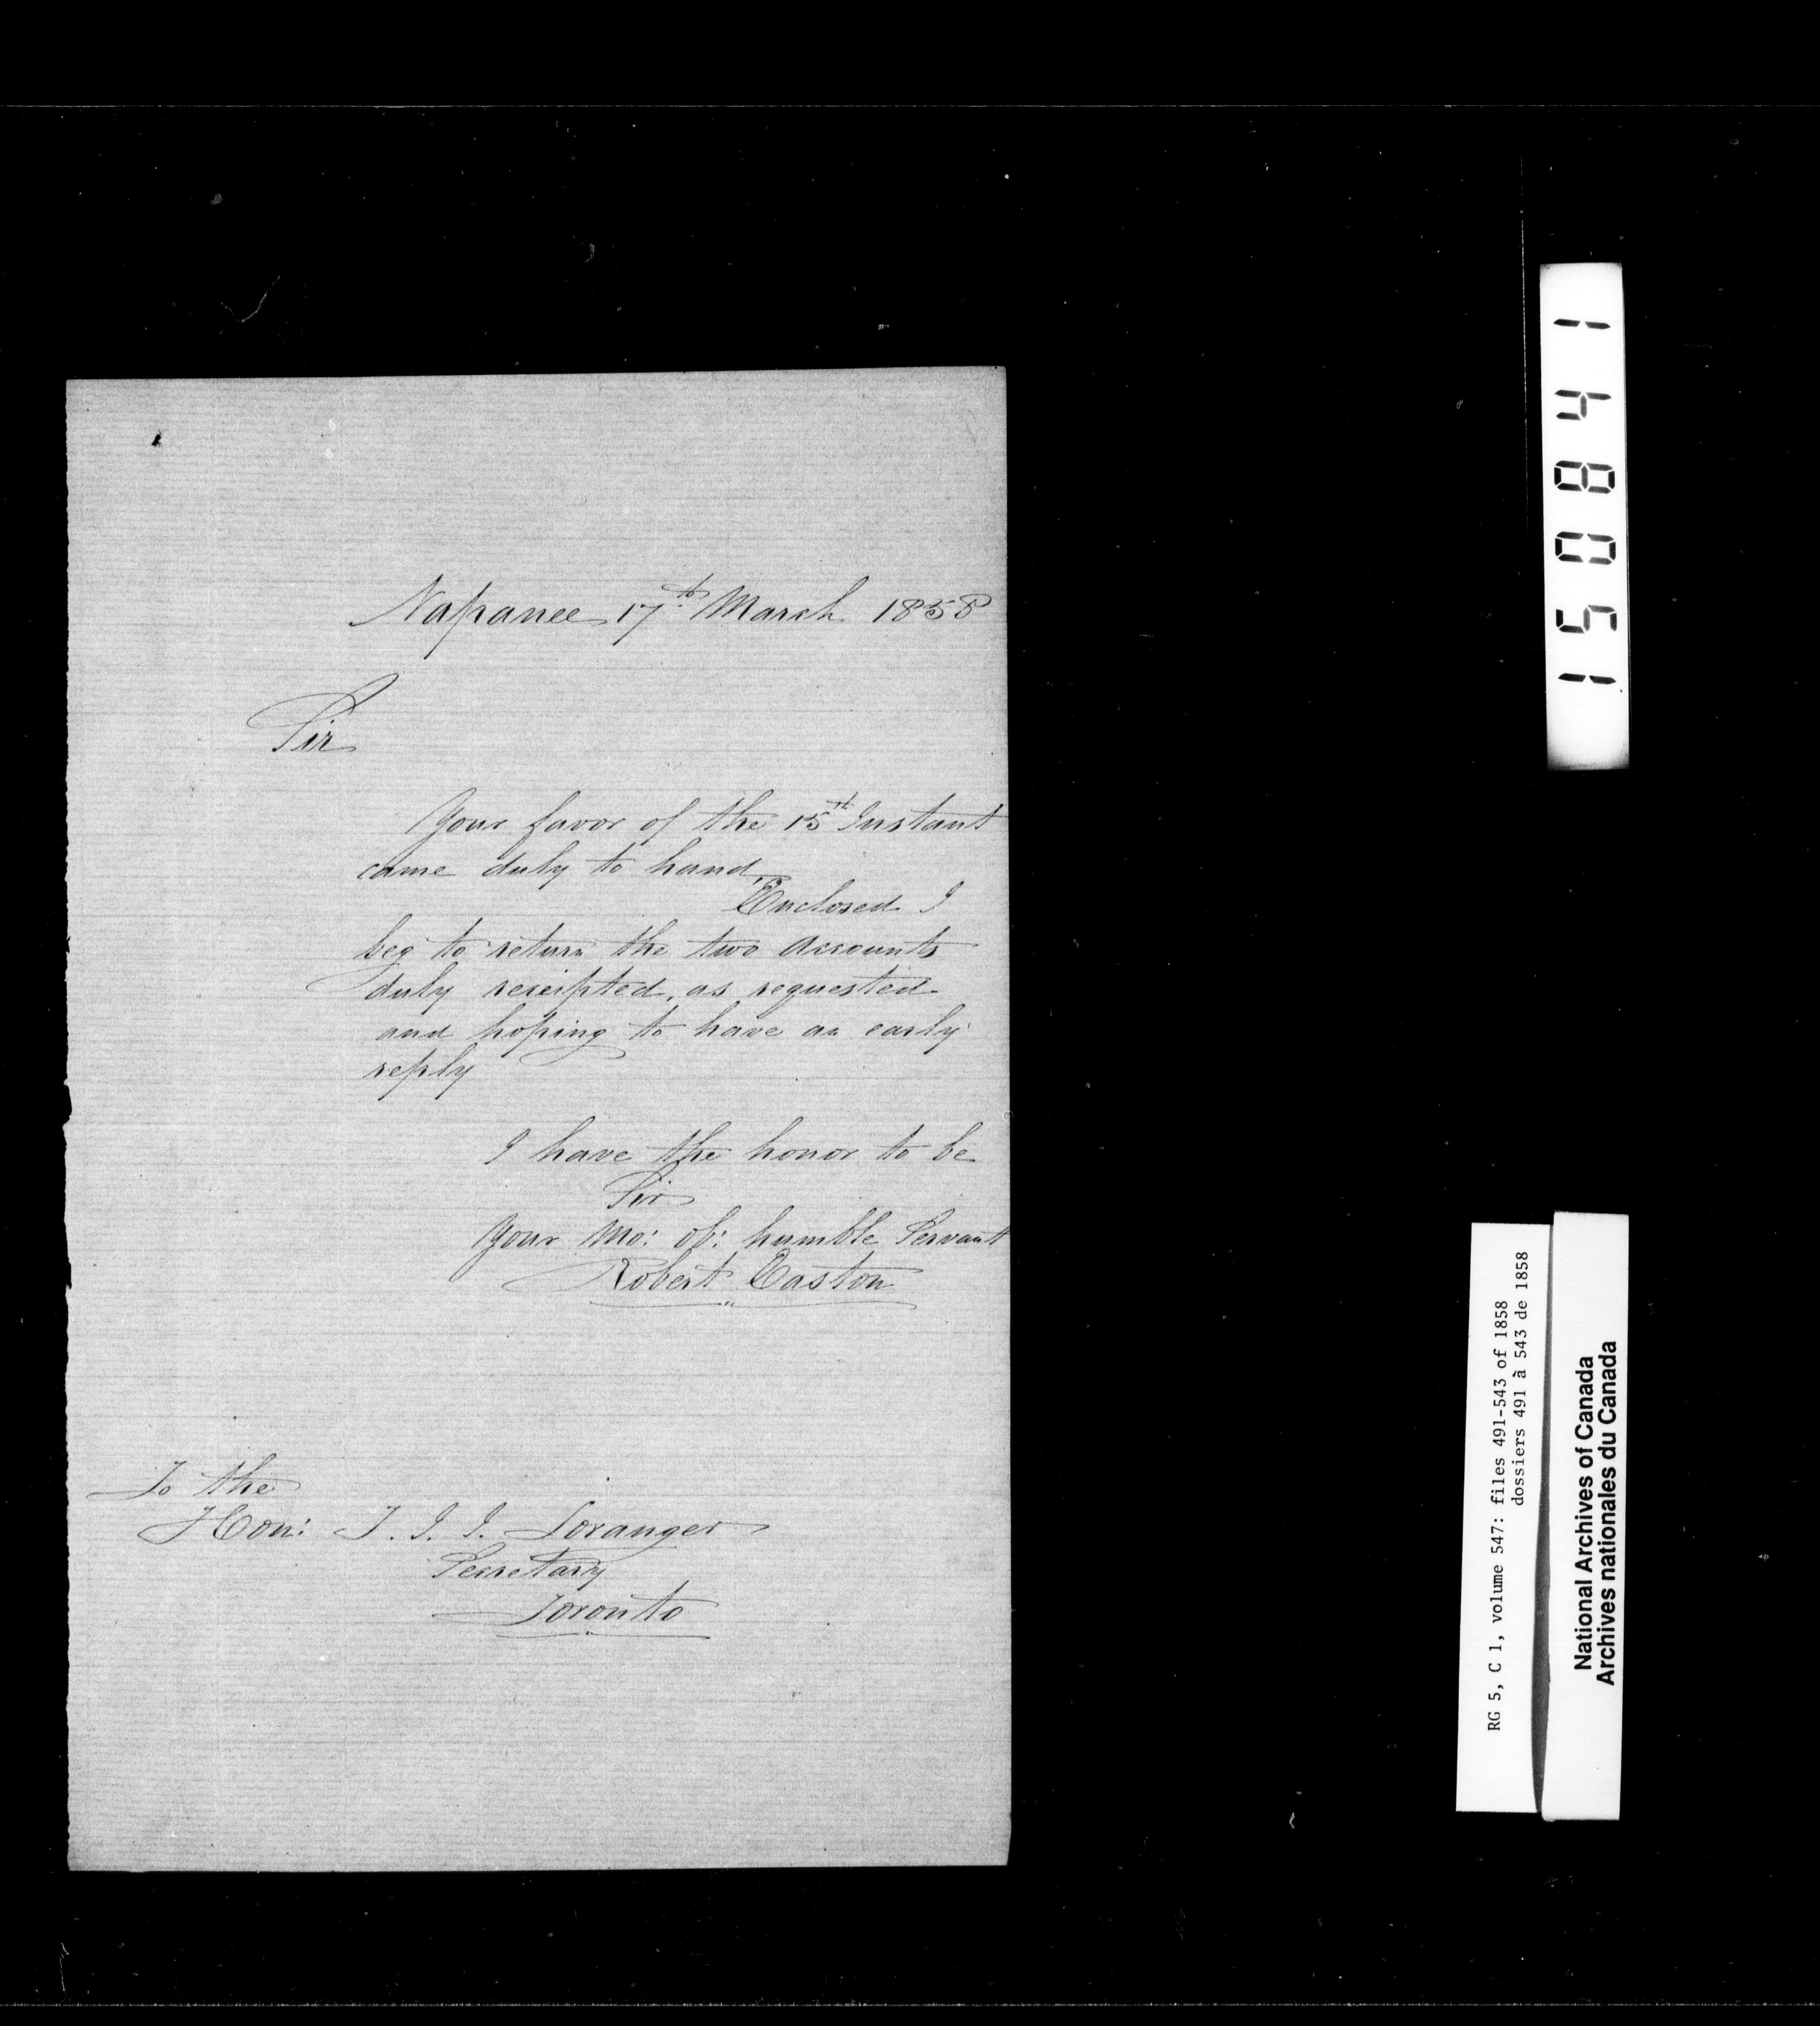 Napanee 17th March 1858
Sir
Your favor of the 15th Instant
came duly to hand,
Enclosed I
beg to return the two Accounts
duly receipted, as requested
and hoping to have an early
reply
I have the honor to be
Sir
Your Mo: ob: humble Servant
Robert Easton
To the
Hon: T. J. J. Loranger
Secretary
Toronto
150841
RG 5, C 1, volume 547: files 491-543 of 1858
dossiers 491 à 543 de 1858
National Archives of Canada
Archives nationales du Canada